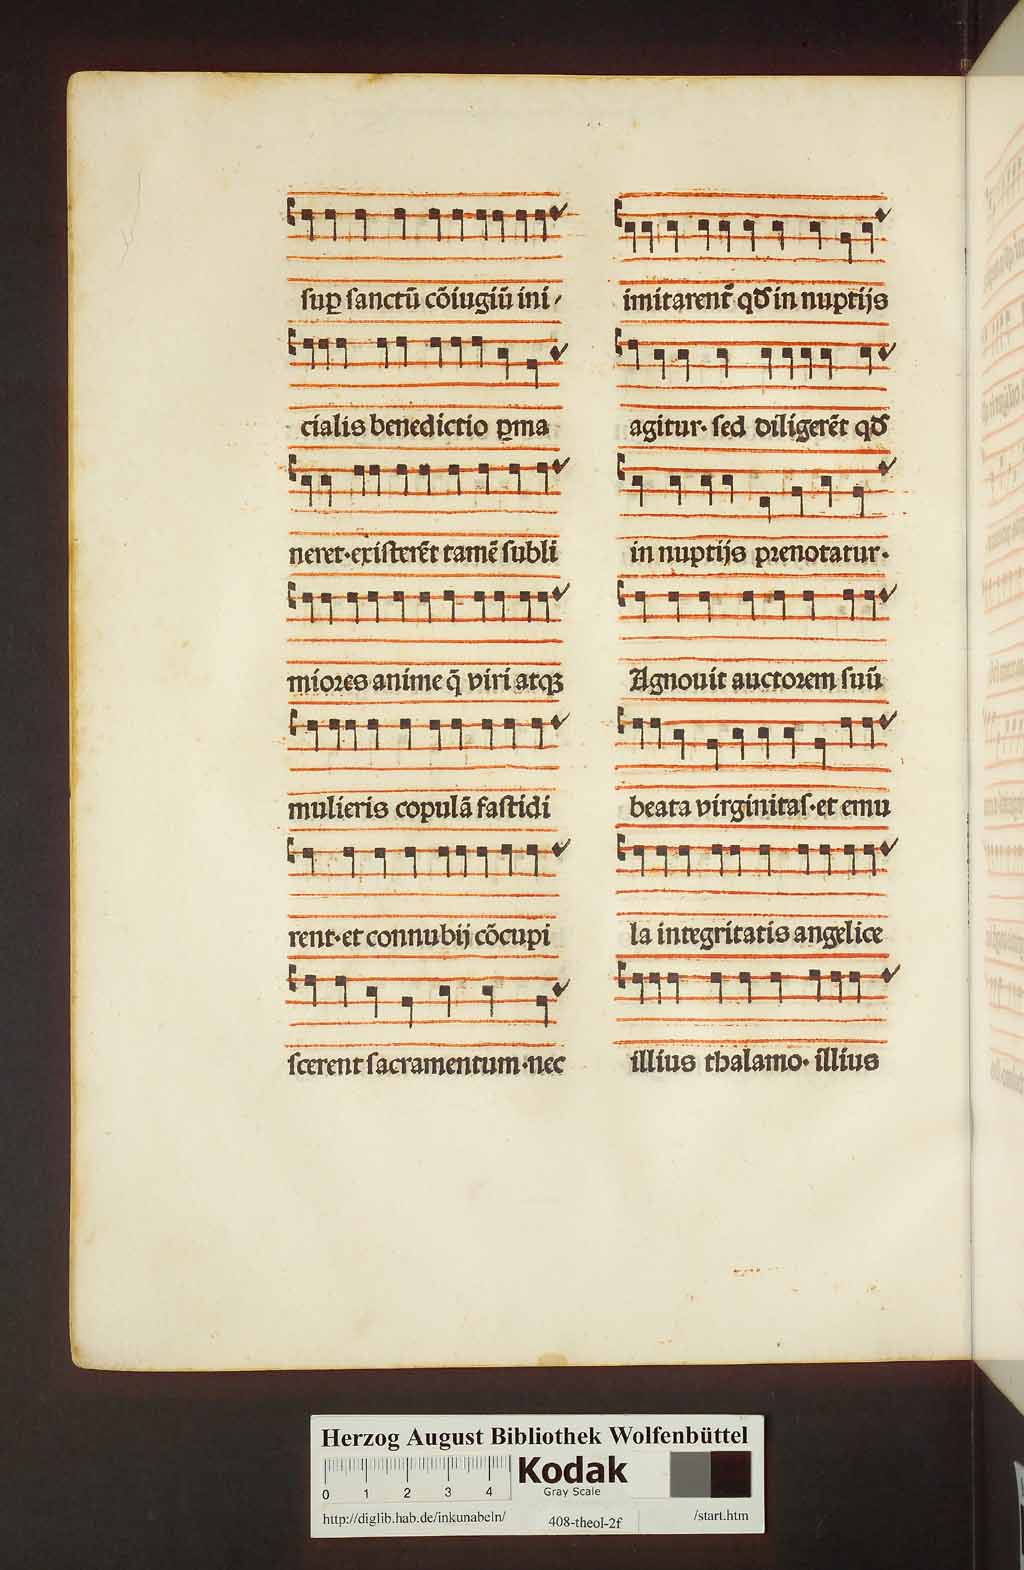 suꝑ sanctū cōiugiū ini/
cialis benedictio ꝑma
neret·existerēt tamē subli
miores anime q̄ viri atqꝫ
mulieris copulā fastidi
rent·et connubij cōcupi
scerent sacramentum·nec
imitarent᷑ qꝺ in nuptijs
agitur· sed diligerēt qꝺ
in nuptijs prenotatur·
Agnouit auctorem suū
beata virginitas·et emu
la integritatis angelice
illius thalamo· illius
Herzog August Bibliothek Wolfenbüttel
0 1 2 3 4
Kodak
Gray Scale
http://diglib.hab.de/inkunabeln/ 408-theol-2f /start.htm